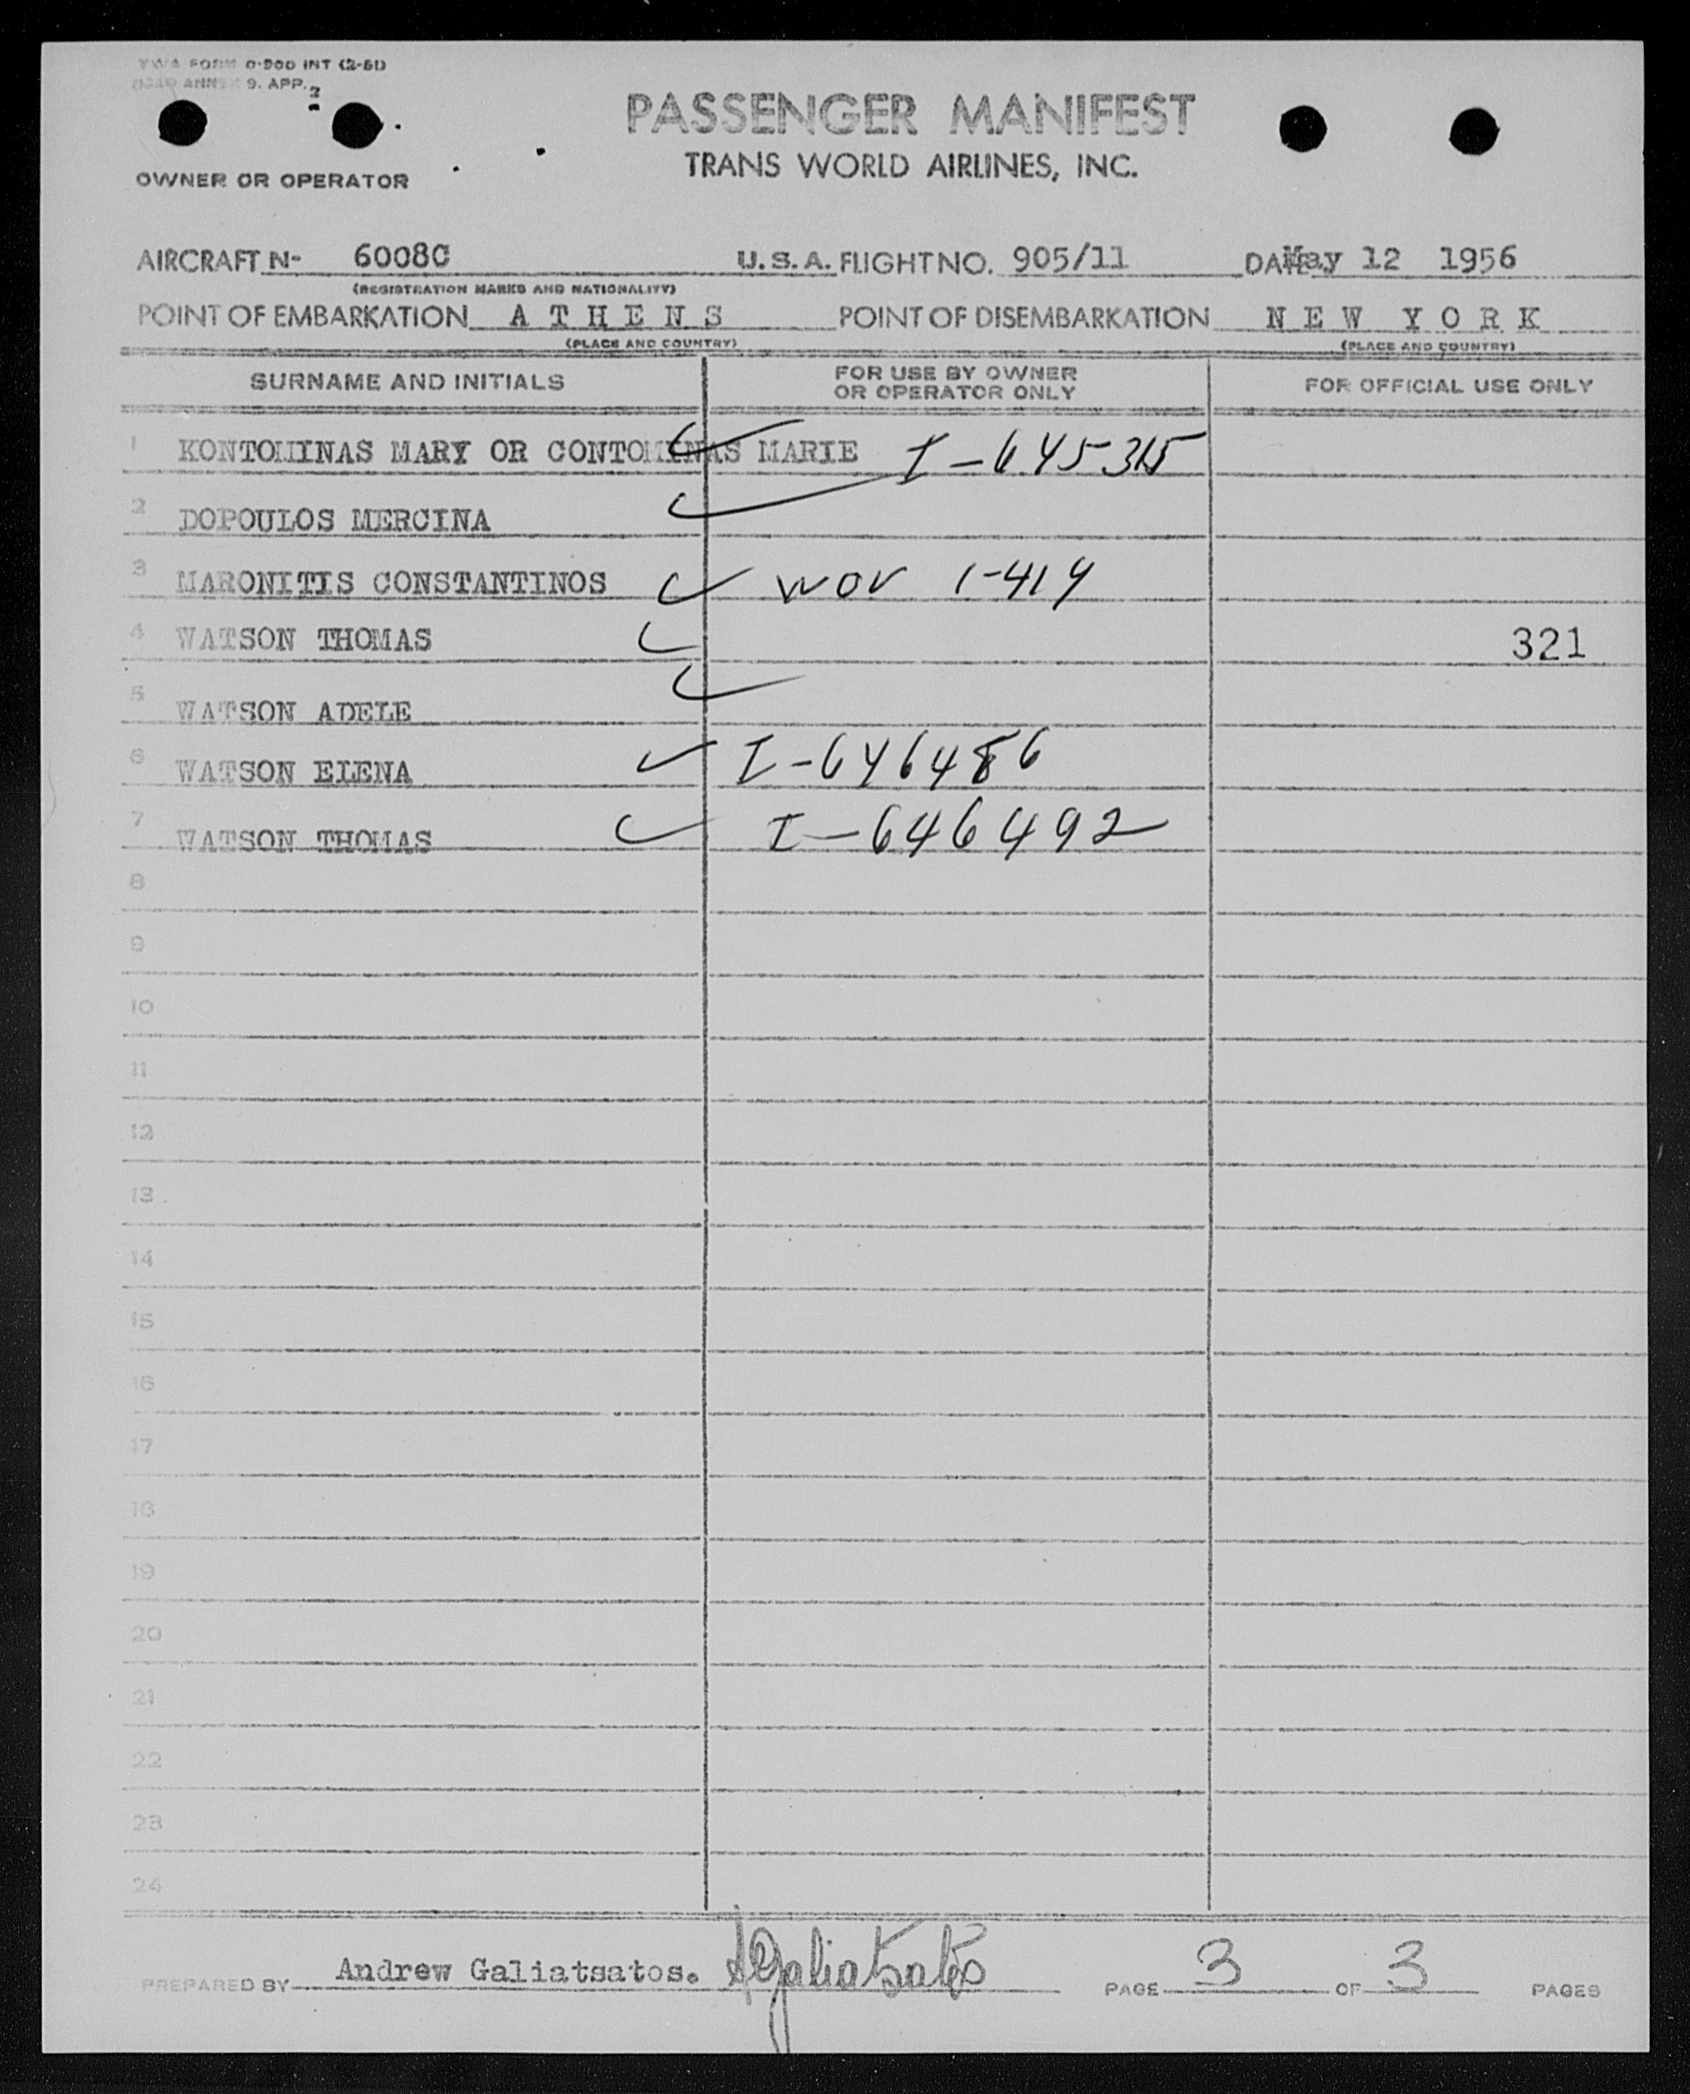 TWA FORM 0-900 INT (2-51)
ICAO ANNEX 9. APP. 2
PASSENGER MANIFEST
TRANS WORLD AIRLINES, INC.
OWNER OR OPERATOR
AIRCRAFT N- 6008C U.S.A. FLIGHT NO. 905/11 DATE May 12 1956
(REGISTRATION MARKS AND NATIONALITY)
POINT OF EMBARKATION A T H E N S POINT OF DISEMBARKATION N E W Y O R K
(PLACE AND COUNTRY) (PLACE AND COUNTRY)
SURNAME AND INITIALS FOR USE BY OWNER OR OPERATOR ONLY FOR OFFICIAL USE ONLY
1 KONTOMINAS MARY OR CONTOMINAS MARIE I-645315
2 DOPOULOS MERCINA
3 MARONITIS CONSTANTINOS 1-414
4 WATSON THOMAS 321
5 WATSON ADELE
6 WATSON ELENA I-646486
7 WATSON THOMAS I-646492
8
9
10
11
12
13
14
15
16
17
18
19
20
21
22
23
24
PREPARED BY Andrew Galiatsatos. AGaliatsatos PAGE 3 OF 3 PAGES